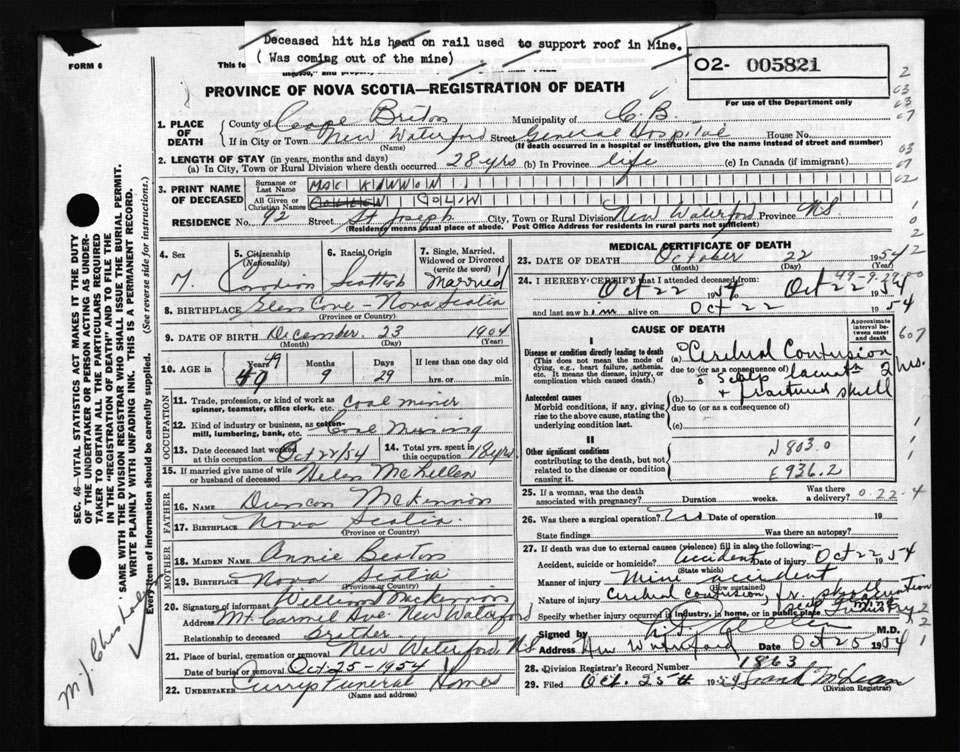 Deceased hit his head on rail used to support roof in Mine.
(Was coming out of the mine)
FORM 6
O2- 005821
For use of the Department only
PROVINCE OF NOVA SCOTIA—REGISTRATION OF DEATH
1. PLACE OF DEATH County of Cape Breton Municipality of C.B.
If in City or Town New Waterford Street General Hospital House No.
(Name) (If death occurred in a hospital or institution, give the name instead of street and number)
2. LENGTH OF STAY (in years, months and days)
(a) In City, Town or Rural Division where death occurred 28 yrs (b) In Province life (c) In Canada (if immigrant)
3. PRINT NAME OF DECEASED Surname or Last Name MacKINNON
All Given or Christian Names COLIN
RESIDENCE No. 92 Street St Joseph City, Town or Rural Division New Waterford Province NS
(Residence means usual place of abode. Post Office Address for residents in rural parts not sufficient)
4. Sex M.
5. Citizenship (Nationality) Canadian
6. Racial Origin Scottish
7. Single, Married, Widowed or Divorced (write the word) Married
8. BIRTHPLACE Glen Cove - Nova Scotia
(Province or Country)
9. DATE OF BIRTH December 23 1904
(Month) (Day) (Year)
10. AGE in Years 49 Months 9 Days 29 If less than one day old hrs. or min.
OCCUPATION
11. Trade, profession or kind of work as spinner, teamster, office clerk, etc. Coal miner
12. Kind of industry or business, as cotton-mill, lumbering, bank, etc. Coal Mining
13. Date deceased last worked at this occupation Oct 22/54
14. Total yrs. spent in this occupation 18 yrs
15. If married give name of wife or husband of deceased Helen McLellan
FATHER
16. Name Duncan McKinnon
17. Birthplace Nova Scotia
(Province or Country)
MOTHER
18. Maiden Name Annie Beaton
19. Birthplace Nova Scotia
(Province or Country)
20. Signature of informant William McKinnon
Address Mt. Carmel Ave New Waterford
Relationship to deceased Brother
21. Place of burial, cremation or removal New Waterford, N.S.
Date of burial or removal Oct-25-1954
22. UNDERTAKER Currys Funeral Homes
(Name and address)
MEDICAL CERTIFICATE OF DEATH
23. DATE OF DEATH October 22 1954
(Month) (Day) (Year)
24. I HEREBY CERTIFY that I attended deceased from:
Oct 22 1954 Oct 22 54
and last saw him alive on Oct 22 1954
CAUSE OF DEATH
Approximate interval between onset and death
I
Disease or condition directly leading to death (a) Cerebral Contusion 2 hrs.
(This does not mean the mode of dying, e.g., heart failure, asthenia, etc. It means the disease, injury, or complication which caused death.)
due to (or as a consequence of) scalp
Antecedent causes (b) + fractured skull
Morbid conditions, if any, giving rise to the above cause, stating the underlying condition last.
due to (or as a consequence of)
(c)
II
Other significant conditions contributing to the death, but not related to the disease or condition causing it.
N803.0
E936.2
25. If a woman, was the death associated with pregnancy? Duration weeks. Was there a delivery? 0.22.4
26. Was there a surgical operation? No Date of operation 19
State findings Was there an autopsy?
27. If death was due to external causes (violence) fill in also the following:—
Accident, suicide or homicide? Accident Date of injury Oct 22 1954
(State which)
Manner of injury Mine accident
(How sustained)
Nature of injury Cerebral contusion,
Specify whether injury occurred in industry, in home, or in public place Industry
Signed by M.D.
Address New Waterford Date Oct 25 1954
28. Division Registrar's Record Number 1863
29. Filed Oct. 25th 1954 Frank McLean
(Division Registrar)
SEC. 46—VITAL STATISTICS ACT MAKES IT THE DUTY OF THE UNDERTAKER OR PERSON ACTING AS UNDERTAKER TO OBTAIN ALL THE PARTICULARS REQUIRED IN THE "REGISTRATION OF DEATH" AND TO FILE THE SAME WITH THE DIVISION REGISTRAR WHO SHALL ISSUE THE BURIAL PERMIT.
WRITE PLAINLY WITH UNFADING INK. THIS IS A PERMANENT RECORD.
Every item of information should be carefully supplied. (See reverse side for instructions.)
M.J. Chisholm